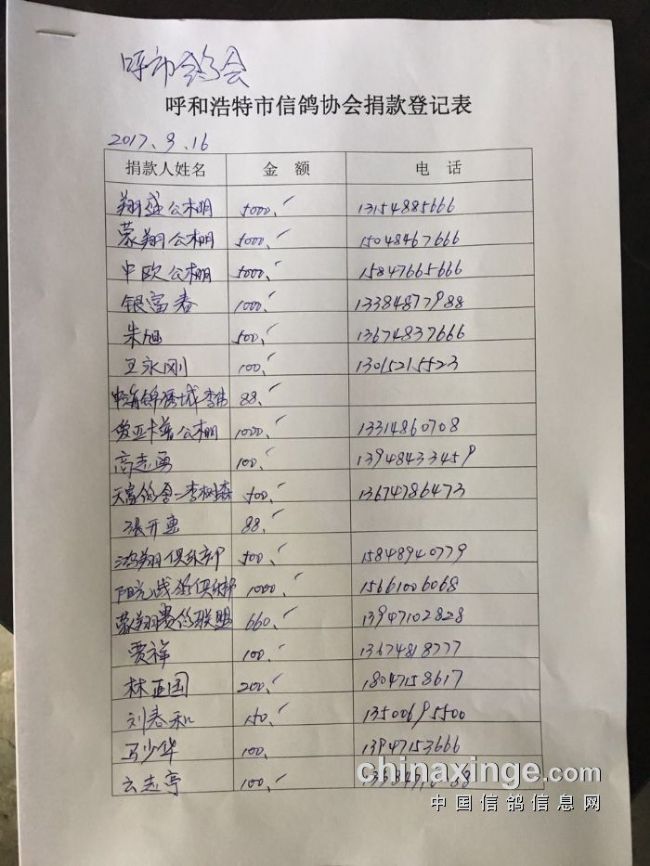 呼市鸽会
呼和浩特市信鸽协会捐款登记表
2017.9.16
捐款人姓名 金 额 电 话
翔盛公棚 5000. 13154885666
蒙翔公棚 5000. 15048467666
中欧公棚 5000. 15847665666
银富春 1000. 13384877988
朱旭 500. 13674837666
王永刚 100. 13015215523
88.
爱亚卡普公棚 1000. 13314860708
高志勇 100. 13948433459
天富鸽舍-李树森 500. 13674786473
张开 88.
鸿翔俱乐部 500. 15848940779
阳光战鸽俱乐部 1000. 15661006068
蒙翔赛鸽联盟 660. 13947102828
贾祥 100. 13674818777
林正国 200. 18047158617
刘春和 150. 13500695500
马少华 100. 13947153666
云志亭 100.
chinaxinge.com
中国信鸽信息网